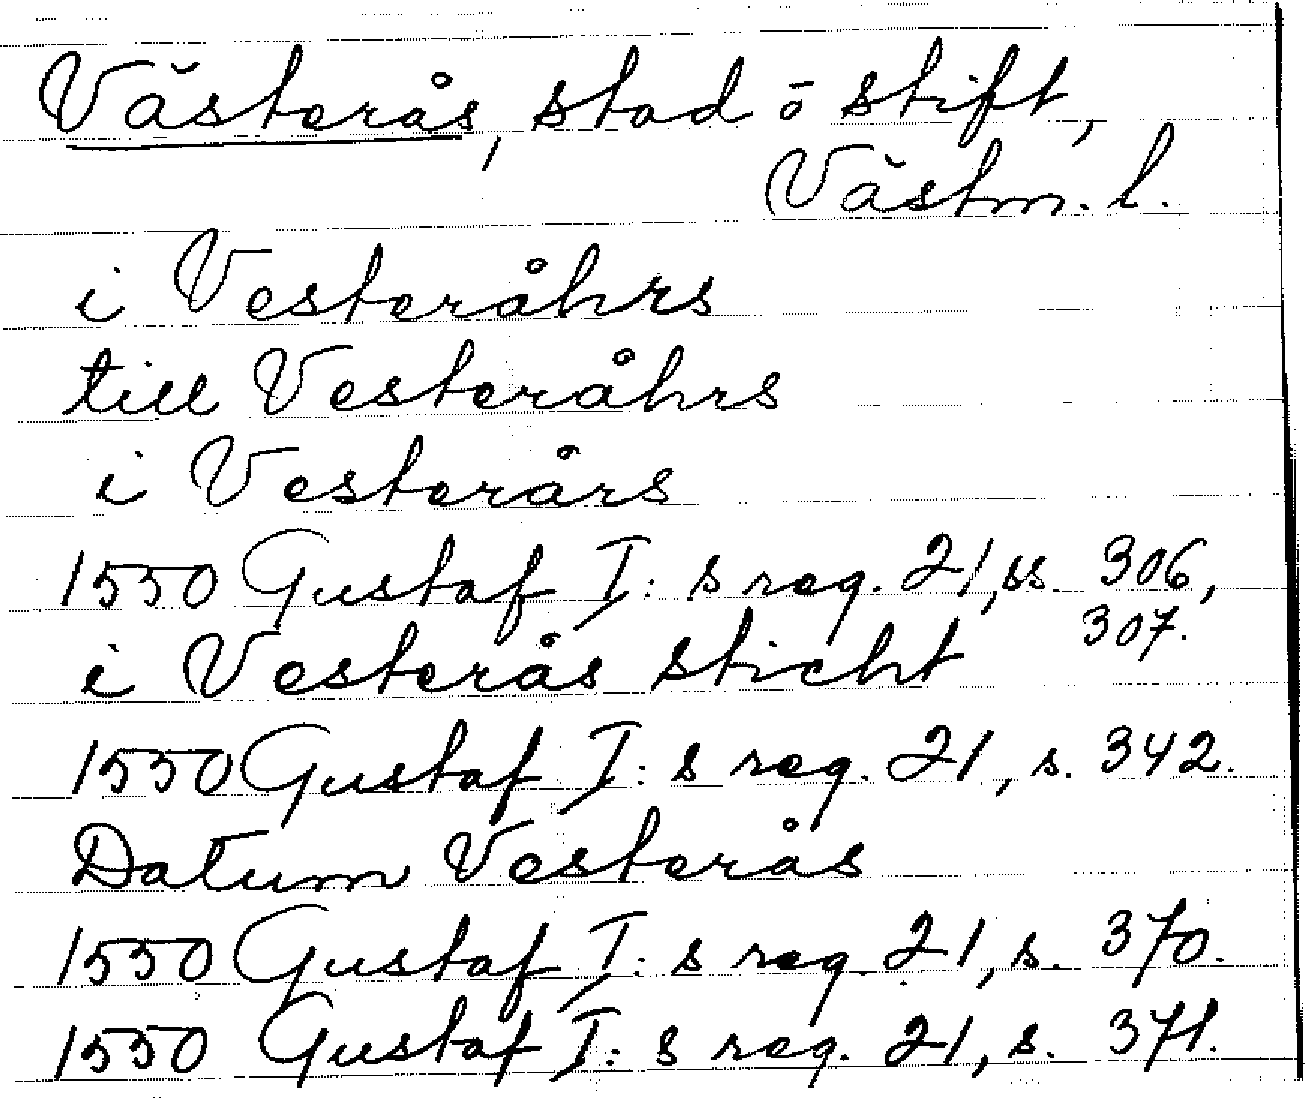 Västerås, stad o stift,
Västm. l.
i Vesteråhrs
till Vesteråhrs
i Vesterårs
1550 Gustaf I: s reg. 21, ss. 306,
307.
i Vesterås sticht
1550 Gustaf I: s reg. 21, s. 342.
Datum Vesterås
1550 Gustaf I: s reg. 21, s. 370.
1550 Gustaf I: s reg. 21, s. 371.